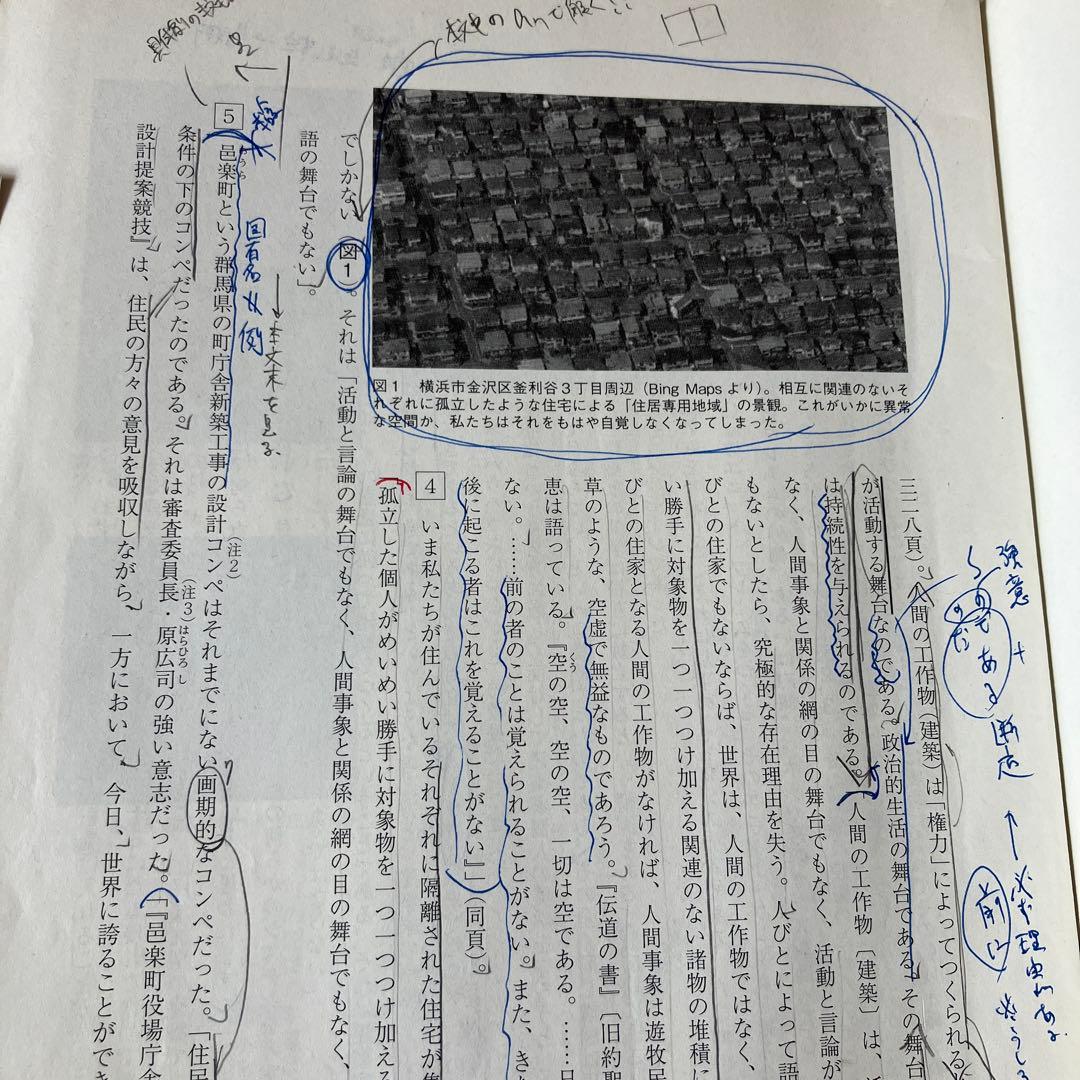 三二八頁）。人間の工作物（建築）は「権力」によってつくられる
が活動する舞台なのである。政治的生活の舞台である。その舞台
は持続性を与えられるのである。人間の工作物〔建築〕は、
なく、人間事象と関係の網の目の舞台でもなく、活動と言論が
もないとしたら、究極的な存在理由を失う。人びとによって語
びとの住家でもないならば、世界は、人間の工作物ではなく、
い勝手に対象物を一つ一つつけ加える関連のない諸物の堆積に
びとの住家となる人間の工作物がなければ、人間事象は遊牧民
草のような、空虚で無益なものであろう。『伝道の書』〔旧約聖
恵は語っている。『空の空、空の空、一切は空である。……日
ない。……前の者のことは覚えられることがない。また、き
後に起こる者はこれを覚えることがない』」（同頁）。
4 いま私たちが住んでいるそれぞれに隔離された住宅が
「孤立した個人がめいめい勝手に対象物を一つ一つつけ加え
図1 横浜市金沢区釜利谷3丁目周辺（Bing Mapsより）。相互に関連のないそ
れぞれに孤立したような住宅による「住居専用地域」の景観。これがいかに異常
な空間か、私たちはそれをもはや自覚しなくなってしまった。
でしかない 図1 。それは「活動と言論の舞台でもなく、人間事象と関係の網の目の舞台でもなく、
語の舞台でもない」。
5 邑楽町という群馬県の町庁舎新築工事の設計コンペはそれまでにない画期的なコンペだった。「住民
おうら
（注2）
条件の下のコンペだったのである。それは審査委員長・原広司の強い意志だった。「『邑楽町役場庁舎
（注3）
はらひろし
設計提案競技』は、住民の方々の意見を吸収しながら、一方において、今日、世界に誇ることができ
くう
強意
断定
図1
本文末を見る